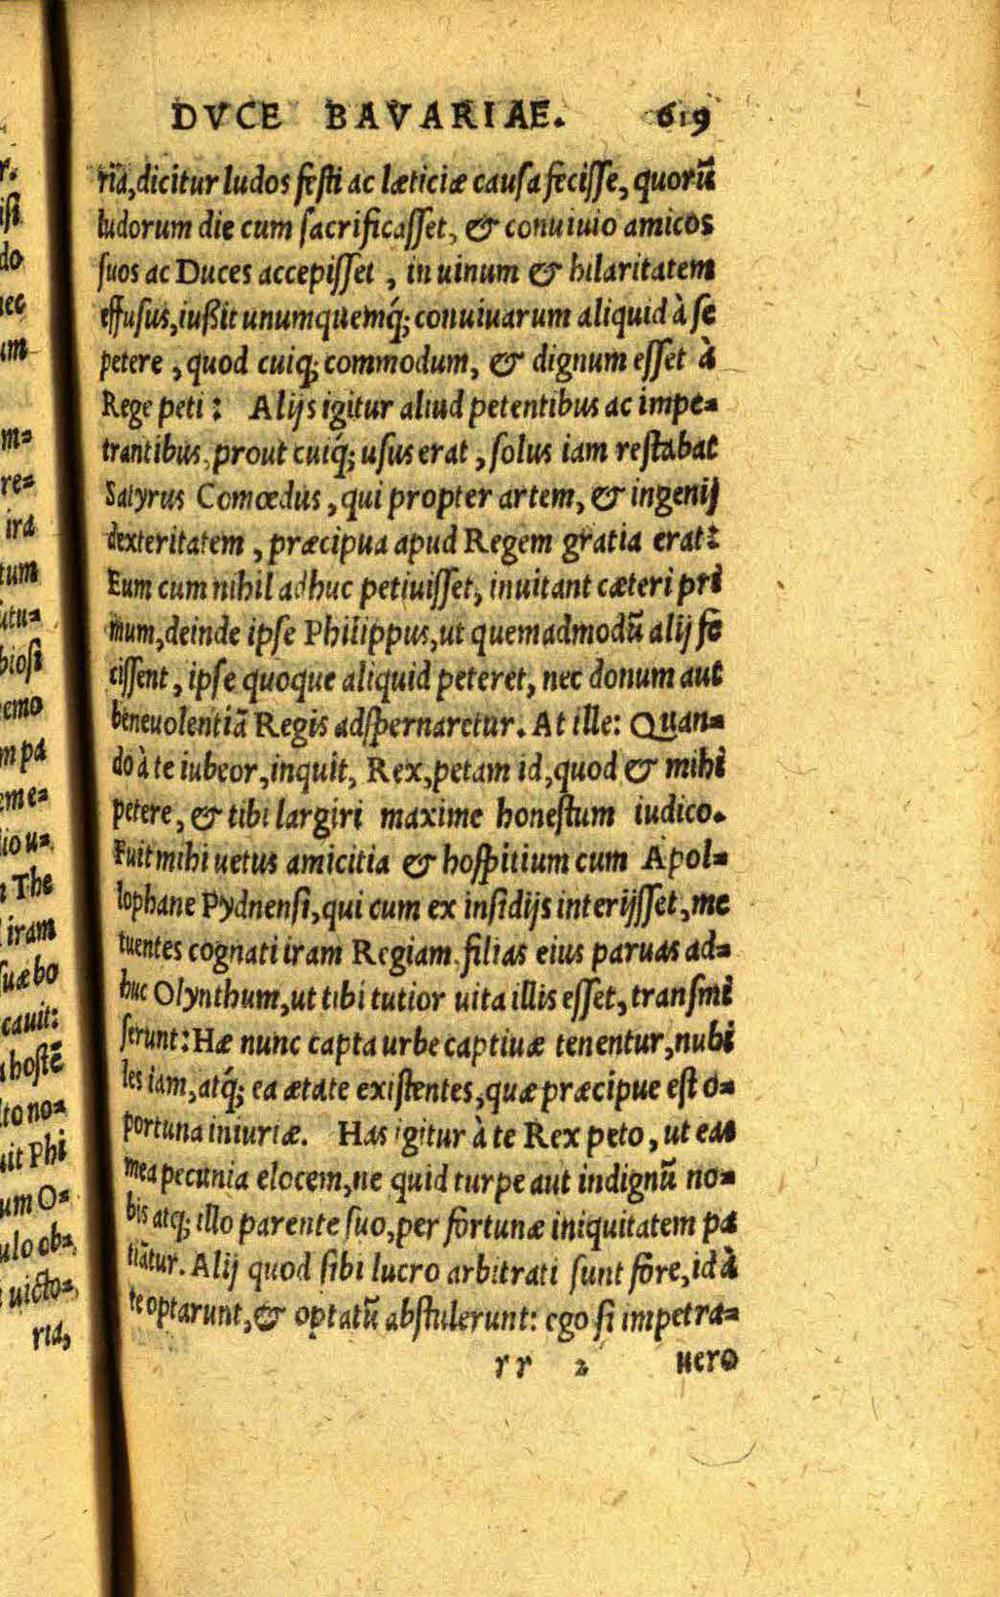 DVCE BAVARIAE. 619
ria, dicitur ludos festi ac læticiæ causa fecisse, quorũ
ludorum die cum sacrificasset, & conuiuio amicos
suos ac Duces accepisset, in uinum & hilaritatem
effusus, iußit unumquemq́; conuiuarum aliquid à se
petere, quod cuiq; commodum, & dignum esset à
Rege peti: Alijs igitur aliud petentibus ac impe=
trantibus, prout cuiq́; usus erat, solus iam restabat
Satyrus Comœdus, qui propter artem, & ingenij
dexteritatem, præcipua apud Regem gratia erat:
Eum cum nihil adhuc petiuisset, inuitant cæteri pri
mum, deinde ipse Philippus, ut quemadmodũ alij fe
cissent, ipse quoque aliquid peteret, nec donum aut
beneuolentiã Regis adspernaretur. At ille: Quan=
do à te iubeor, inquit, Rex, petam id, quod & mihi
petere, & tibi largiri maxime honestum iudico.
Fuit mihi uetus amicitia & hospitium cum Apol=
lophane Pydnensi, qui cum ex insidijs interijsset, me
tuentes cognati iram Regiam, filias eius paruas ad=
huc Olynthum, ut tibi tutior uita illis esset, transmi
serunt: Hæ nunc capta urbe captiuæ tenentur, nubi
les iam, atq́; ea ætate existentes, quæ præcipue est o=
portuna iniuriæ. Has igitur à te Rex peto, ut eas
mea pecunia elocem, ne quid turpe aut indignũ no=
bis atq; illo parente suo, per fortunæ iniquitatem pa
tiãtur. Alij quod sibi lucro arbitrati sunt fore, id à
te optarunt, & optatũ abstulerunt: ego si impetra=
rr 2 uero